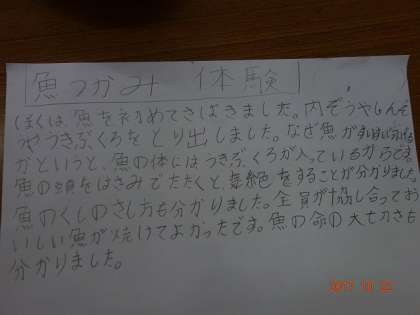 魚つかみ 体験
ぼくは、魚を初めてさばきました。内ぞうやしんぞ
うやうきぶくろをとり出しました。なぜ魚が
かというと、魚の体にはうきぶくろが入っているからです。
魚の頭をはさみでたたくと、気絶をすることが分かりました。
魚のくしのさし方も分かりました。全員が協し合ってお
いしい魚が焼けてよかったです。魚の命の大切さも
分かりました。